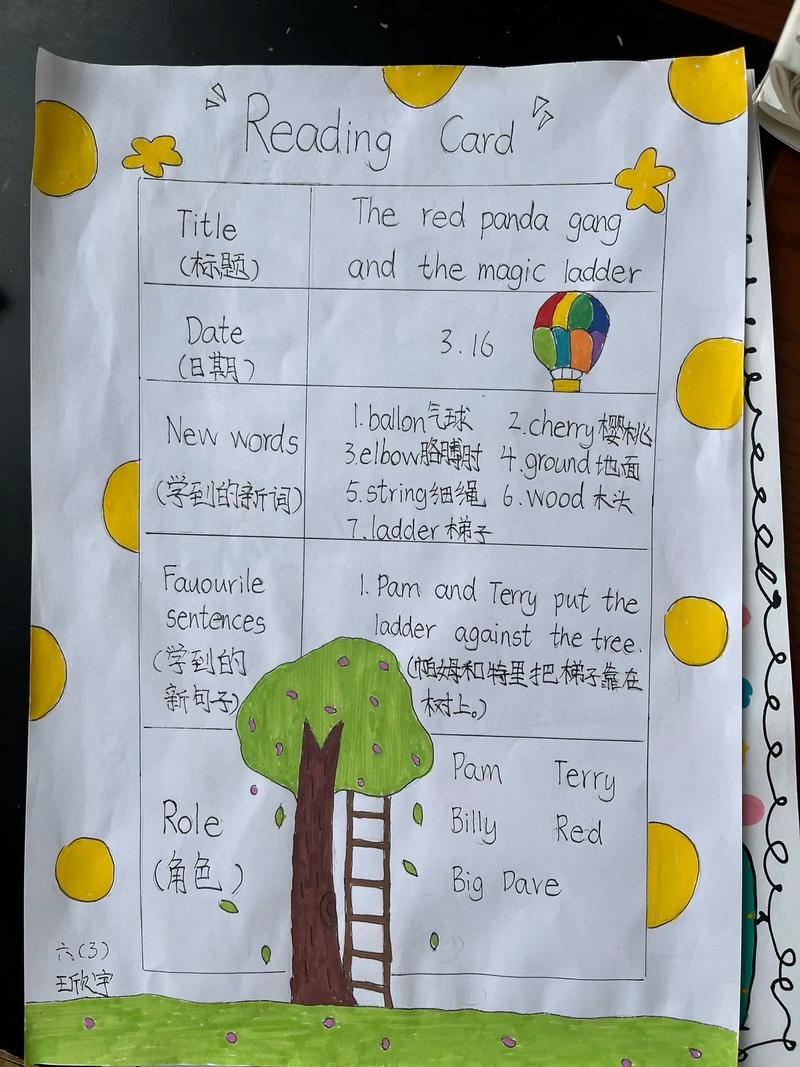 Reading Card
Title
(标题)
The red panda gang
and the magic ladder
Date
(日期)
3.16
New words
(学到的新词)
1.ballon气球 2.cherry樱桃
3.elbow胳膊肘 4.ground地面
5.string细绳 6.wood木头
7.ladder梯子
Fauourile
sentences
(学到的
新句子)
1. Pam and Terry put the
ladder against the tree.
(帕姆和特里把梯子靠在
树上。)
Role
(角色)
Pam Terry
Billy Red
Big Dave
六(3)
王欣宇